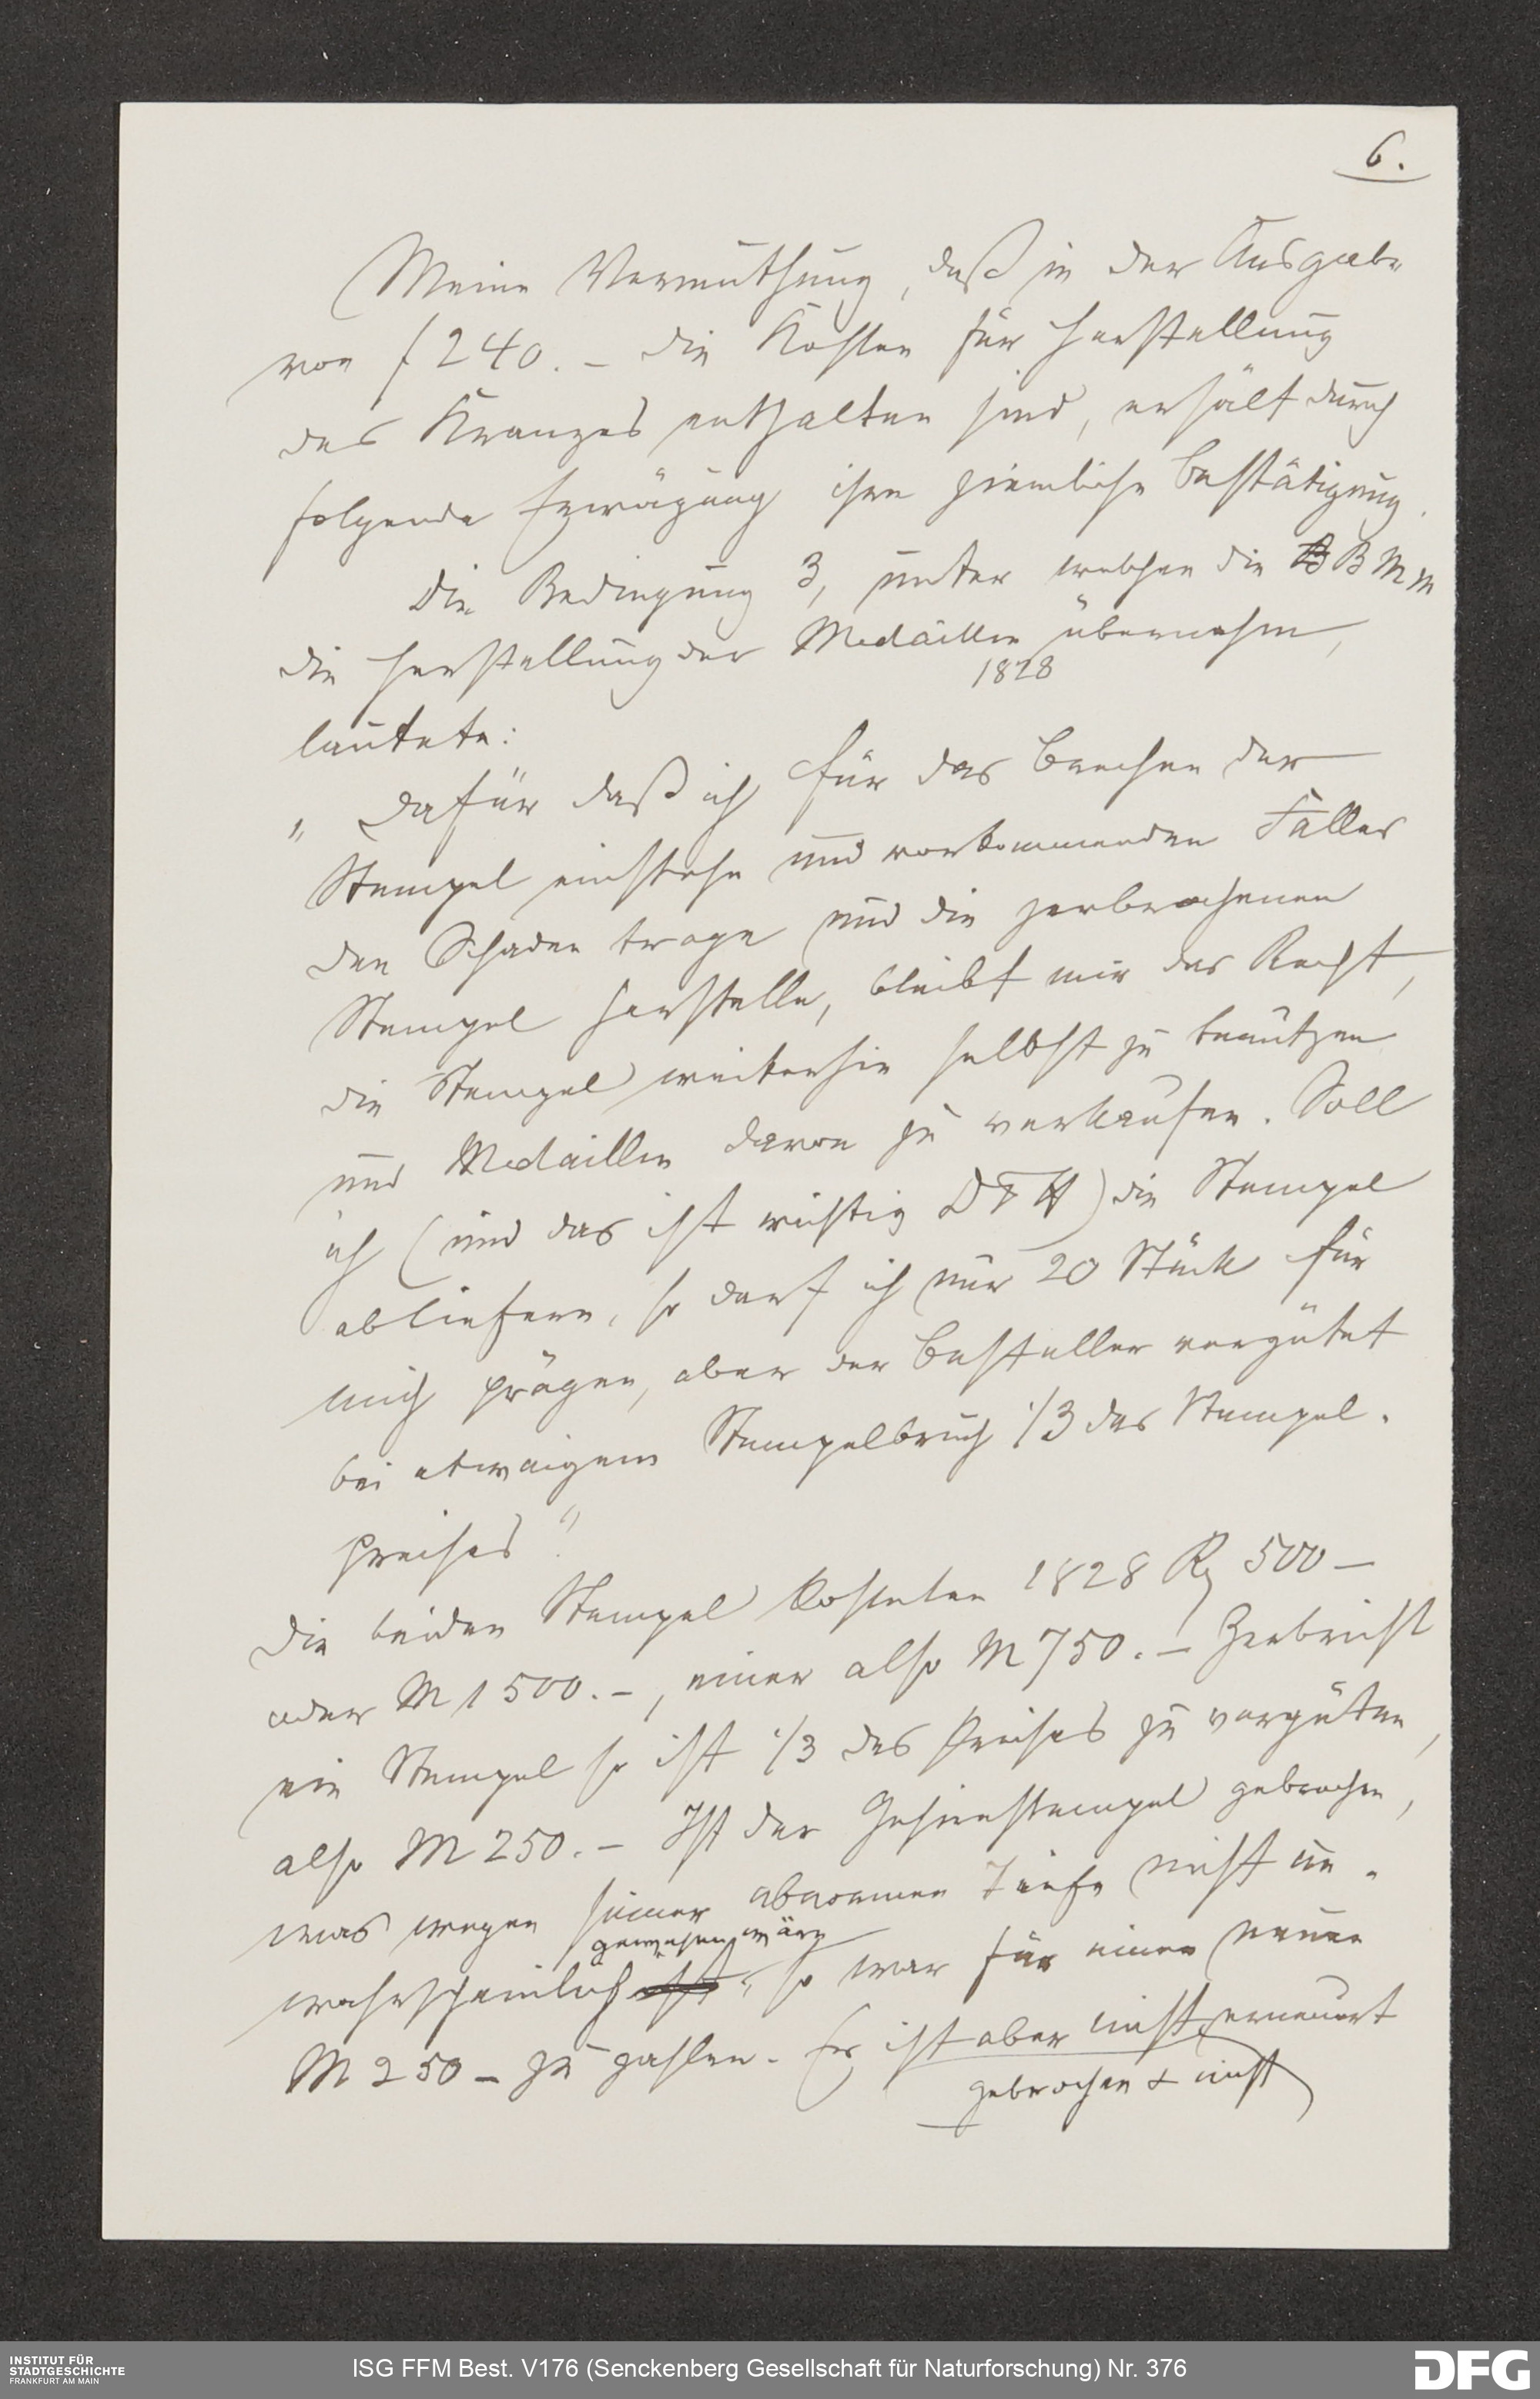 6.
Meine Vermuthung, daß in der Ausgabe
von f 240.- die Kosten für Herstellung
des Kranzes enthalten sind, erhält durch
folgende Erwägung ihre ziemliche Bestätigung.
Die Bedingung 3, unter welchen die B B M M
die Herstellung der Medaillen übernahm,
1828
lautete:
" Dafür daß ich für das Brechen der
Stempel einstehe und vorkommenden Falles
den Schaden trage und die zerbrochenen
Stempel herstelle, bleibt mir das Recht,
die Stempel weiterhin selbst zu benützen
und Medaillen davon zu verkaufen. Soll
ich (und das ist wichtig D F H) die Stempel
abliefern, so darf ich nur 20 Stück für
mich prägen, aber der Besteller vergütet
bei etwaigem Stempelbruch 1/3 des Stempel-
preises."
Die beiden Stempel kosteten 1828 Rz 500 -
oder M 1500.-, einer also M 750.- Zerbricht
ein Stempel so ist 1/3 des Preises zu vergüten,
also M 250.- Ist der Gehirnstempel gebrochen,
was wegen seiner abnormen Tiefe nicht un-
gewesen wäre
wahrscheinlich ist, so war für einen neuen
M 250 - zu zahlen. Er ist aber nicht erneuert
gebrochen & nicht
INSTITUT FÜR
STADTGESCHICHTE
FRANKFURT AM MAIN
ISG FFM Best. V176 (Senckenberg Gesellschaft für Naturforschung) Nr. 376
DFG